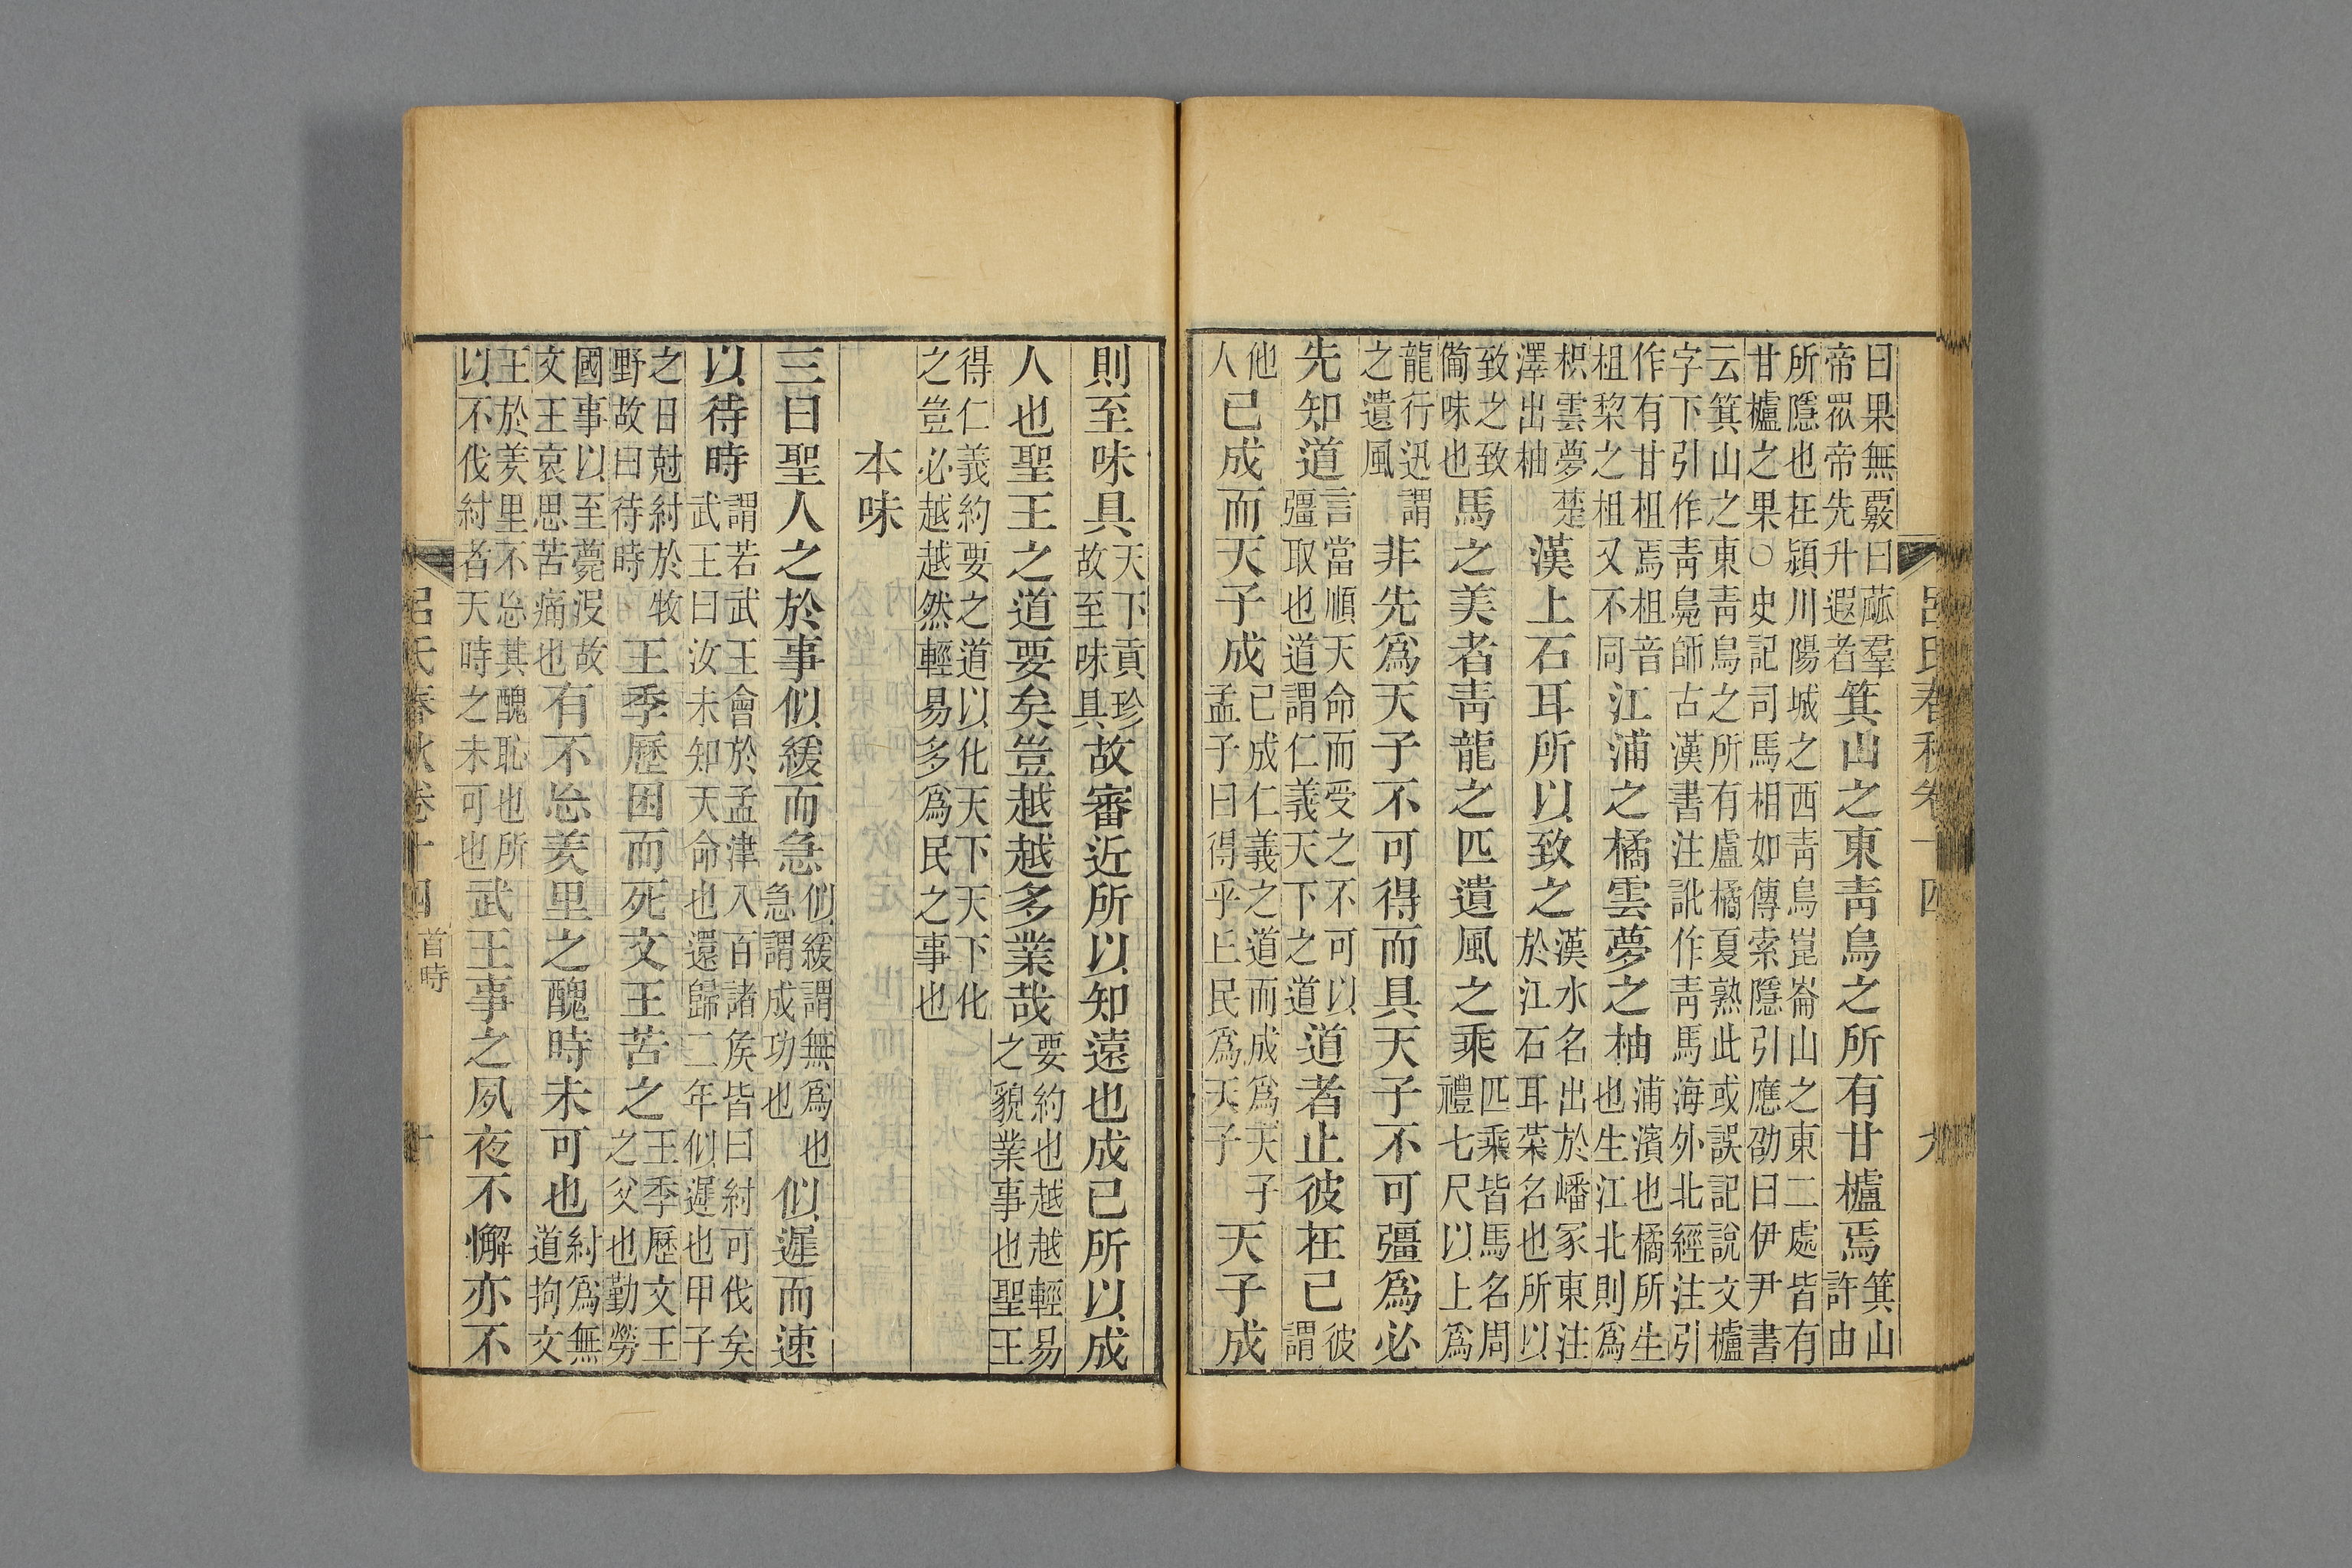 呂氏春秋卷十四 九
曰果無覈曰蓏羣帝眾帝先升遐者箕山之東靑鳥之所有甘櫨焉箕山許由
所隱也在潁川陽城之西靑鳥崑崙山之東二處皆有甘櫨之果○史記司馬相如傳索隱引應劭曰伊尹書
云箕山之東靑鳥之所有盧橘夏熟此或誤記說文櫨字下引作靑鳧師古漢書注訛作靑馬海外北經注引
作有甘柤焉柤音柤棃之柤又不同江浦之橘雲夢之柚浦濱也橘所生也生江北則爲
枳雲夢楚澤出柚漢上石耳所以致之漢水名出於嶓冢東注於江石耳菜名也所以
致之致備味也馬之美者靑龍之匹遺風之乘匹乘皆馬名周禮七尺以上爲
龍行迅謂之遺風非先爲天子不可得而具天子不可彊爲必
先知道言當順天命而受之不可以彊取也道謂仁義天下之道道者止彼在己彼謂
他人已成而天子成已成仁義之道而成爲天子孟子曰得乎丘民爲天子天子成
則至味具天下貢珍故至味具故審近所以知遠也成己所以成
人也聖王之道要矣豈越越多業哉要約也越越輕易之貌業事也聖王
得仁義約要之道以化天下天下化之豈必越越然輕易多爲民之事也
本味
三曰聖人之於事似緩而急似緩謂無爲也急謂成功也似遲而速
以待時謂若武王會於孟津入百諸矦皆曰紂可伐矣武王曰汝未知天命也還歸二年似遲也甲子
之日尅紂於牧野故曰待時王季歷困而死文王苦之王季歷文王之父也勤勞
國事以至薨沒故文王哀思苦痛也有不忘羑里之醜時未可也紂爲無道拘文
王於羑里不忘其醜恥也所以不伐紂者天時之未可也武王事之夙夜不懈亦不
呂氏春秋卷十四 首時 十